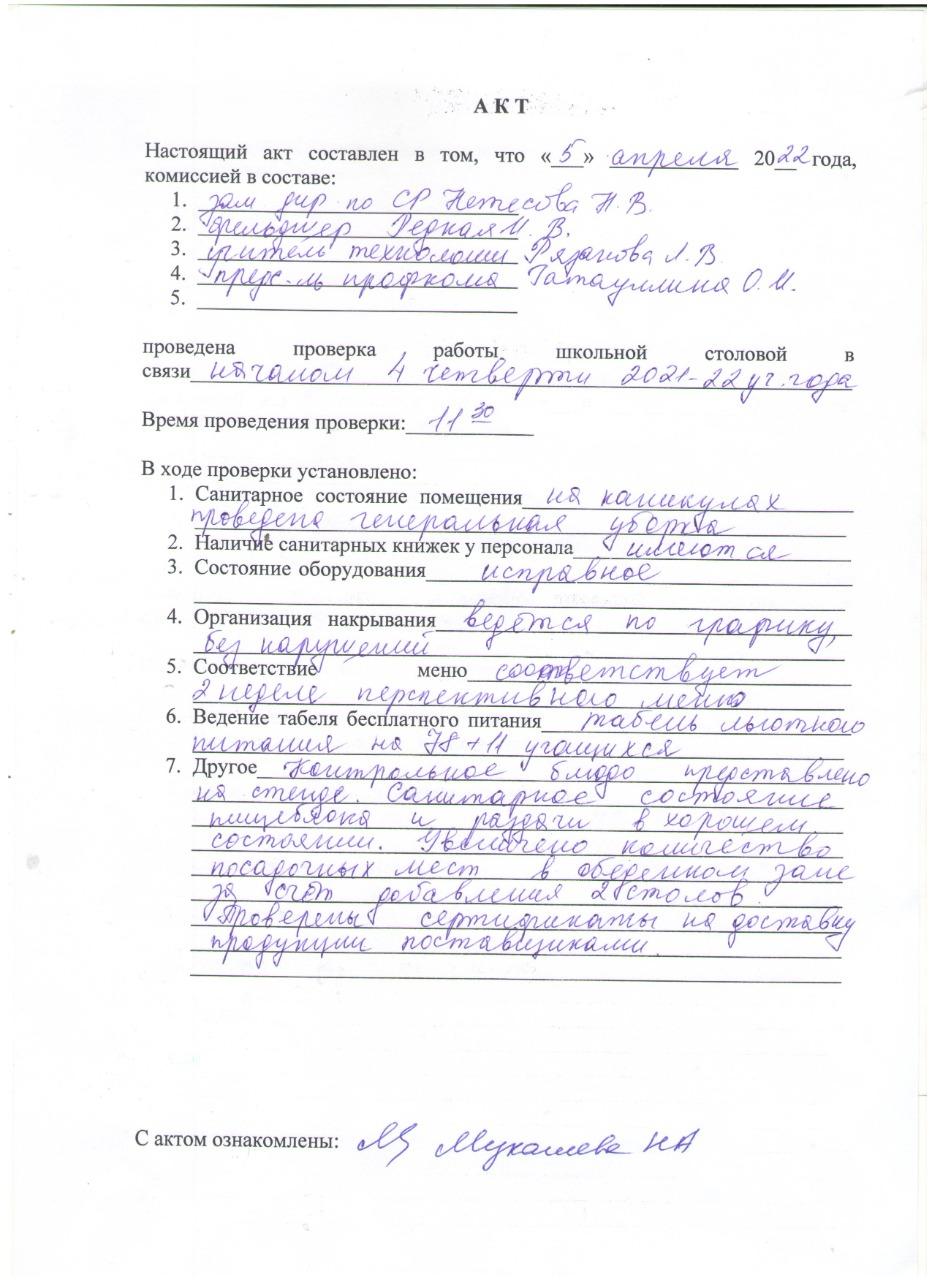 А К Т
Настоящий акт составлен в том, что «5» апреля 2022 года,
комиссией в составе:
1. зам дир по СР Нетесова Н. В.
2. фельдшер Редкая И. В.
3. учитель технологии Рязанова Л. В.
4. предс-ль профкома Гатауллина О. И.
5.
проведена проверка работы школьной столовой в
связи началом 4 четверти 2021-22 уч. года
Время проведения проверки: 11 30
В ходе проверки установлено:
1. Санитарное состояние помещения на каникулах
проведена генеральная уборка
2. Наличие санитарных книжек у персонала имеются
3. Состояние оборудования исправное
4. Организация накрывания ведётся по графику,
без нарушений
5. Соответствие меню соответствует
2 неделе перспективного меню
6. Ведение табеля бесплатного питания табель льготного
питания на 78+11 учащихся
7. Другое Контрольное блюдо представлено
на стенде. Санитарное состояние
пищеблока и раздачи в хорошем
состоянии. Увеличено количество
посадочных мест в обеденном зале
за счёт добавления 2 столов.
Проверены сертификаты на доставку
продукции поставщиками.
С актом ознакомлены: Мукашева НА